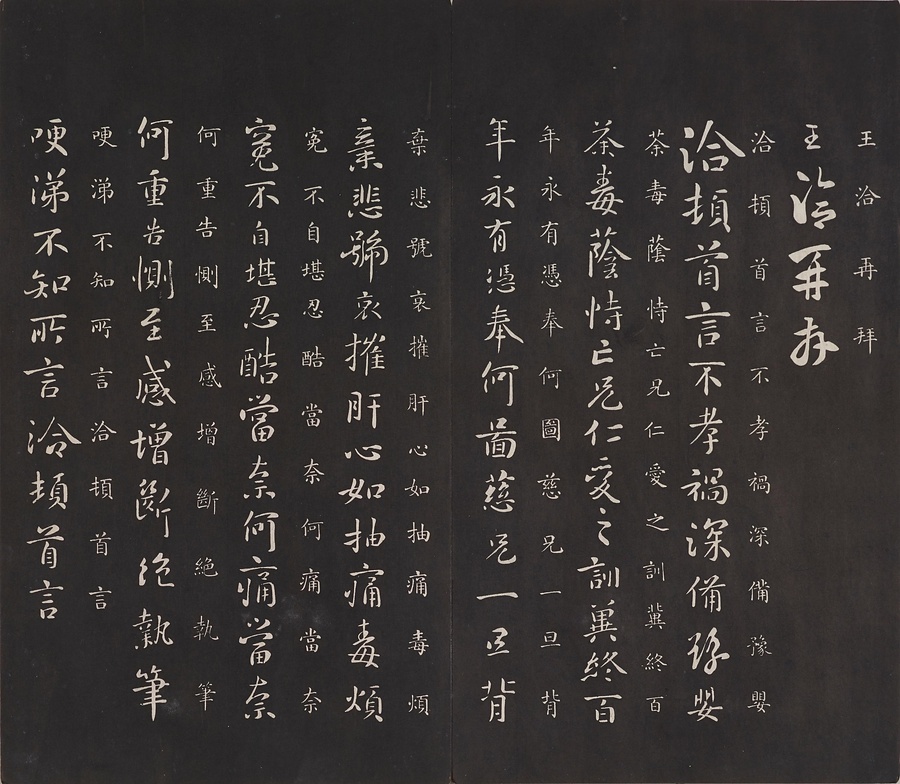 王洽再拜
王洽再拜
洽頓首言不孝禍深備豫嬰
洽頓首言不孝禍深備豫嬰
荼毒蔭恃亡兄仁愛之訓冀終百
荼毒蔭恃亡兄仁愛之訓冀終百
年永有憑奉何圖慈兄一旦背
年永有憑奉何圖慈兄一旦背
棄悲號哀摧肝心如抽痛毒煩
棄悲號哀摧肝心如抽痛毒煩
冤不自堪忍酷當奈何痛當奈
冤不自堪忍酷當奈何痛當奈
何重告惻至感增斷絕執筆
何重告惻至感增斷絕執筆
哽涕不知所言洽頓首言
哽涕不知所言洽頓首言